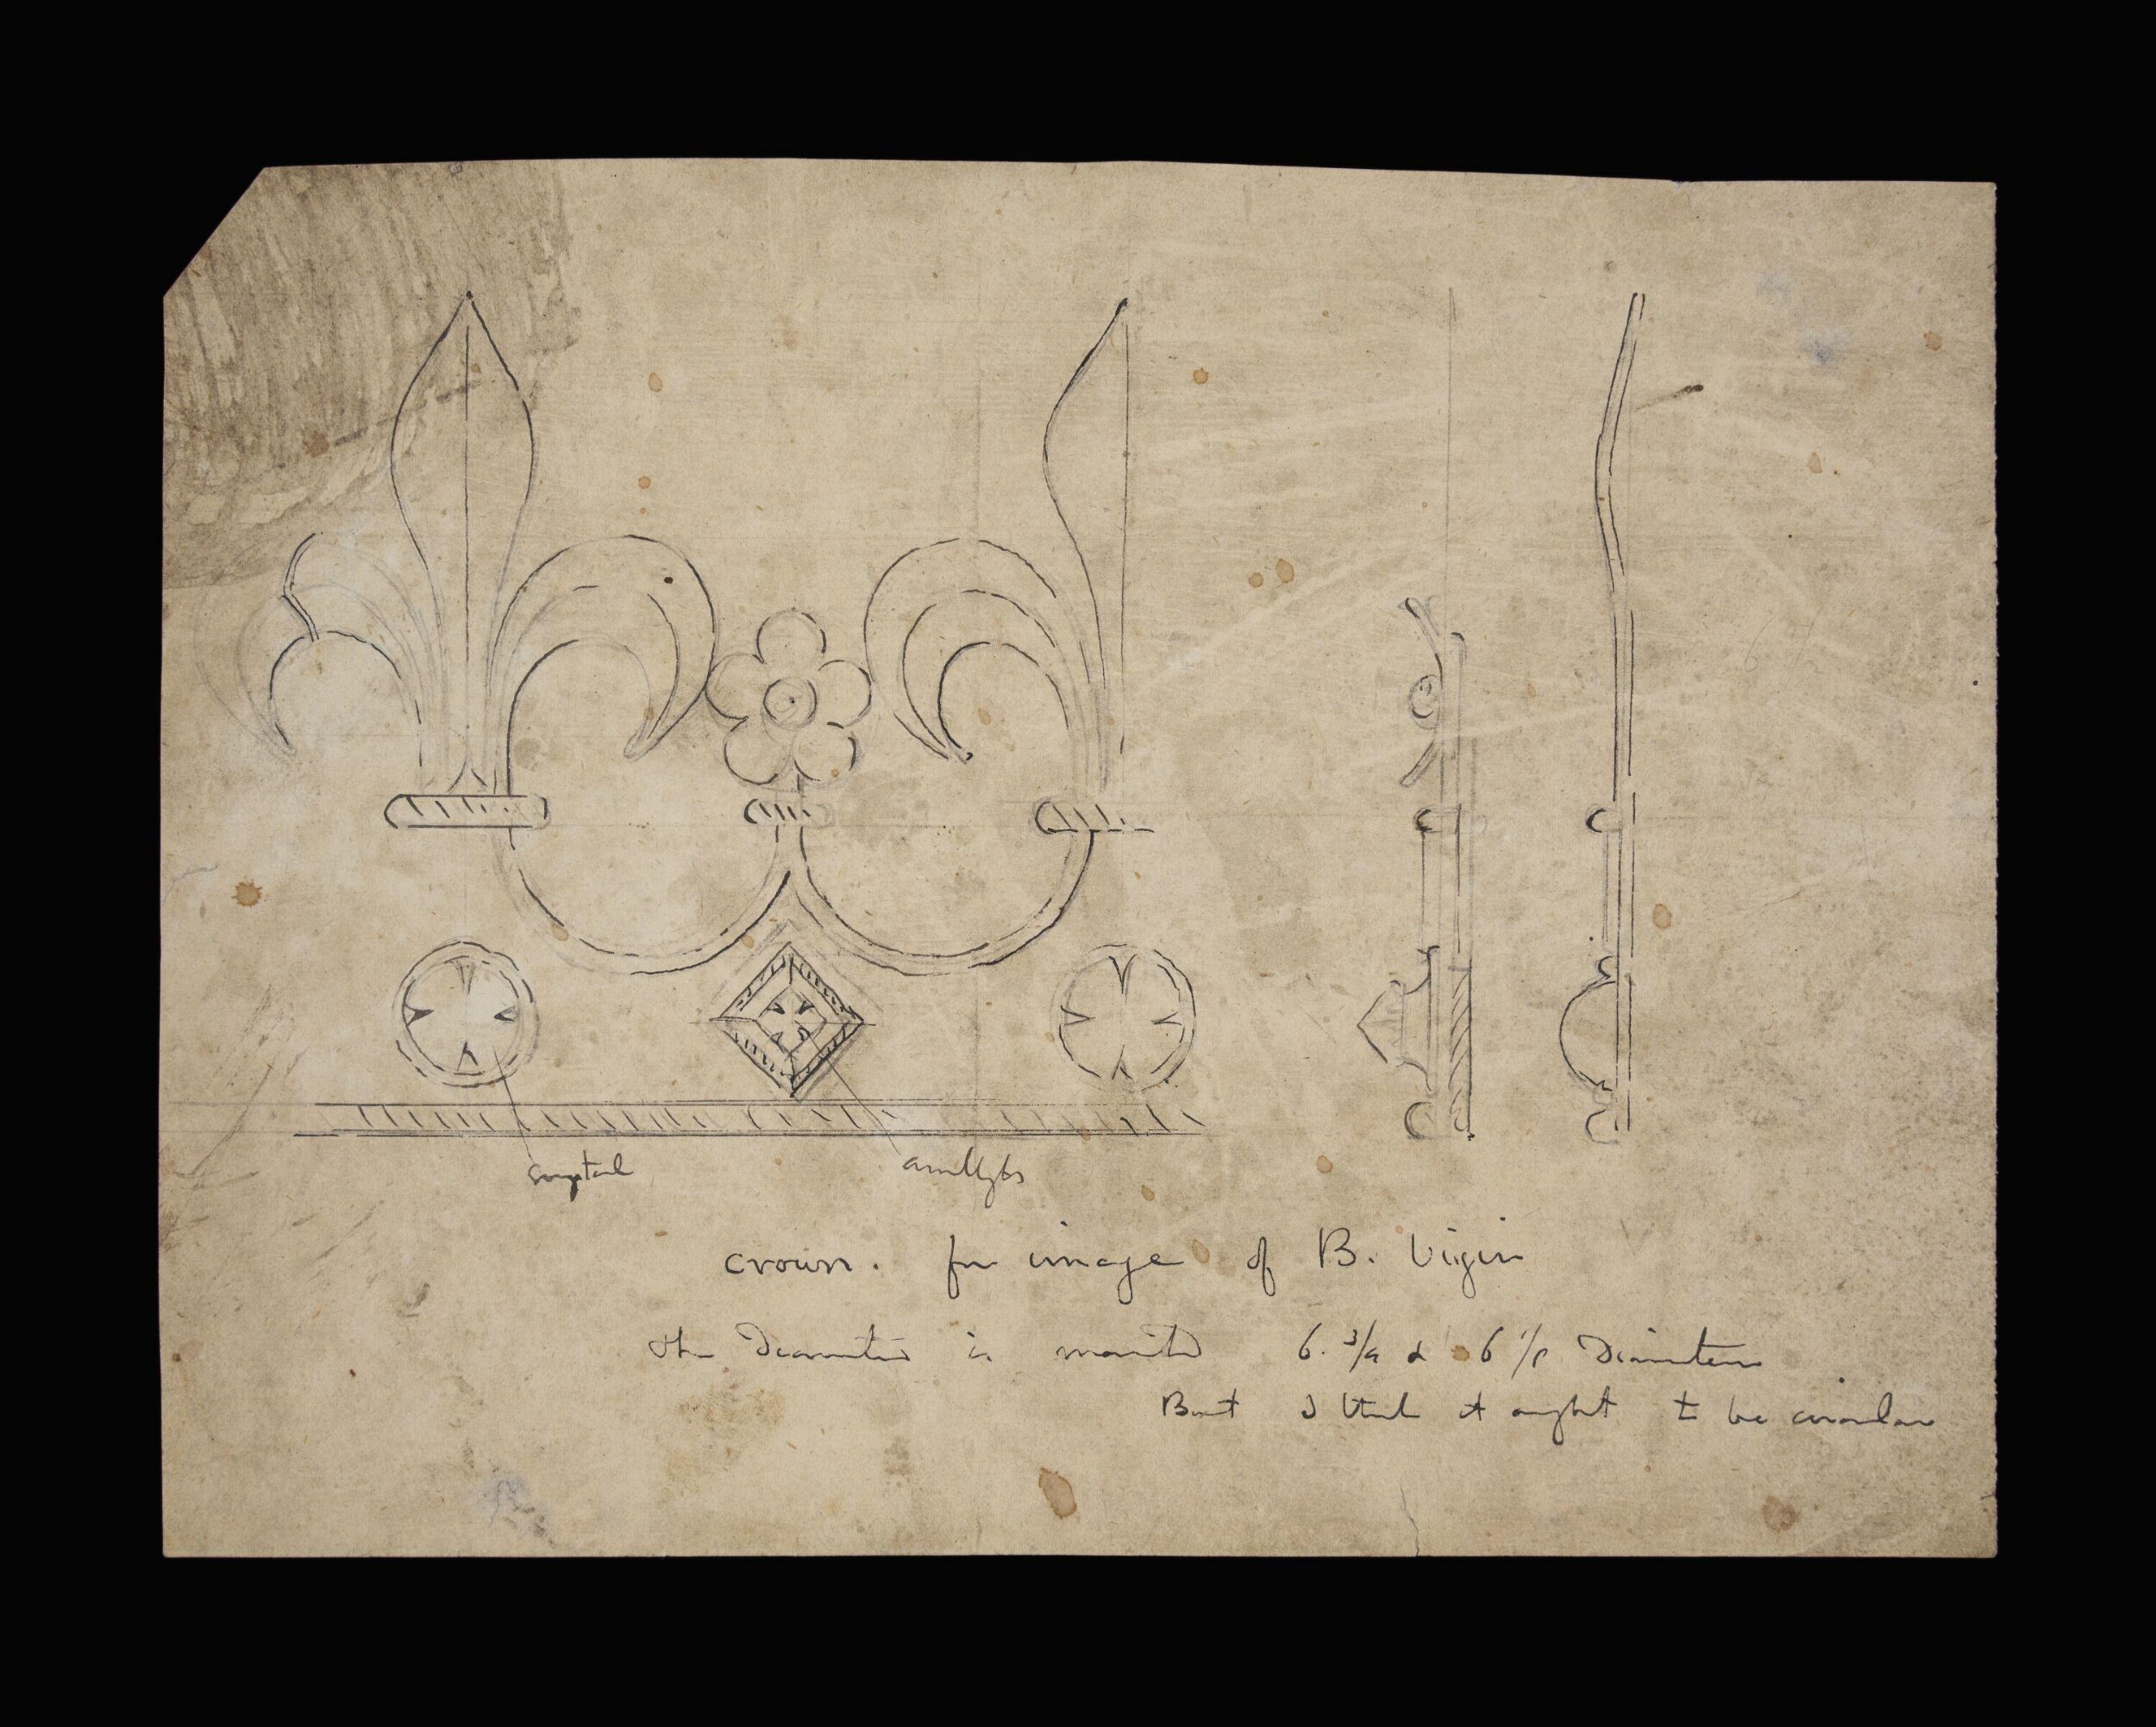 crystal amethysts
crown. for image of B. Virgin
the Diameter is marked 6. 3/4 & 6 1/2 Diameter
But I think it ought to be circular